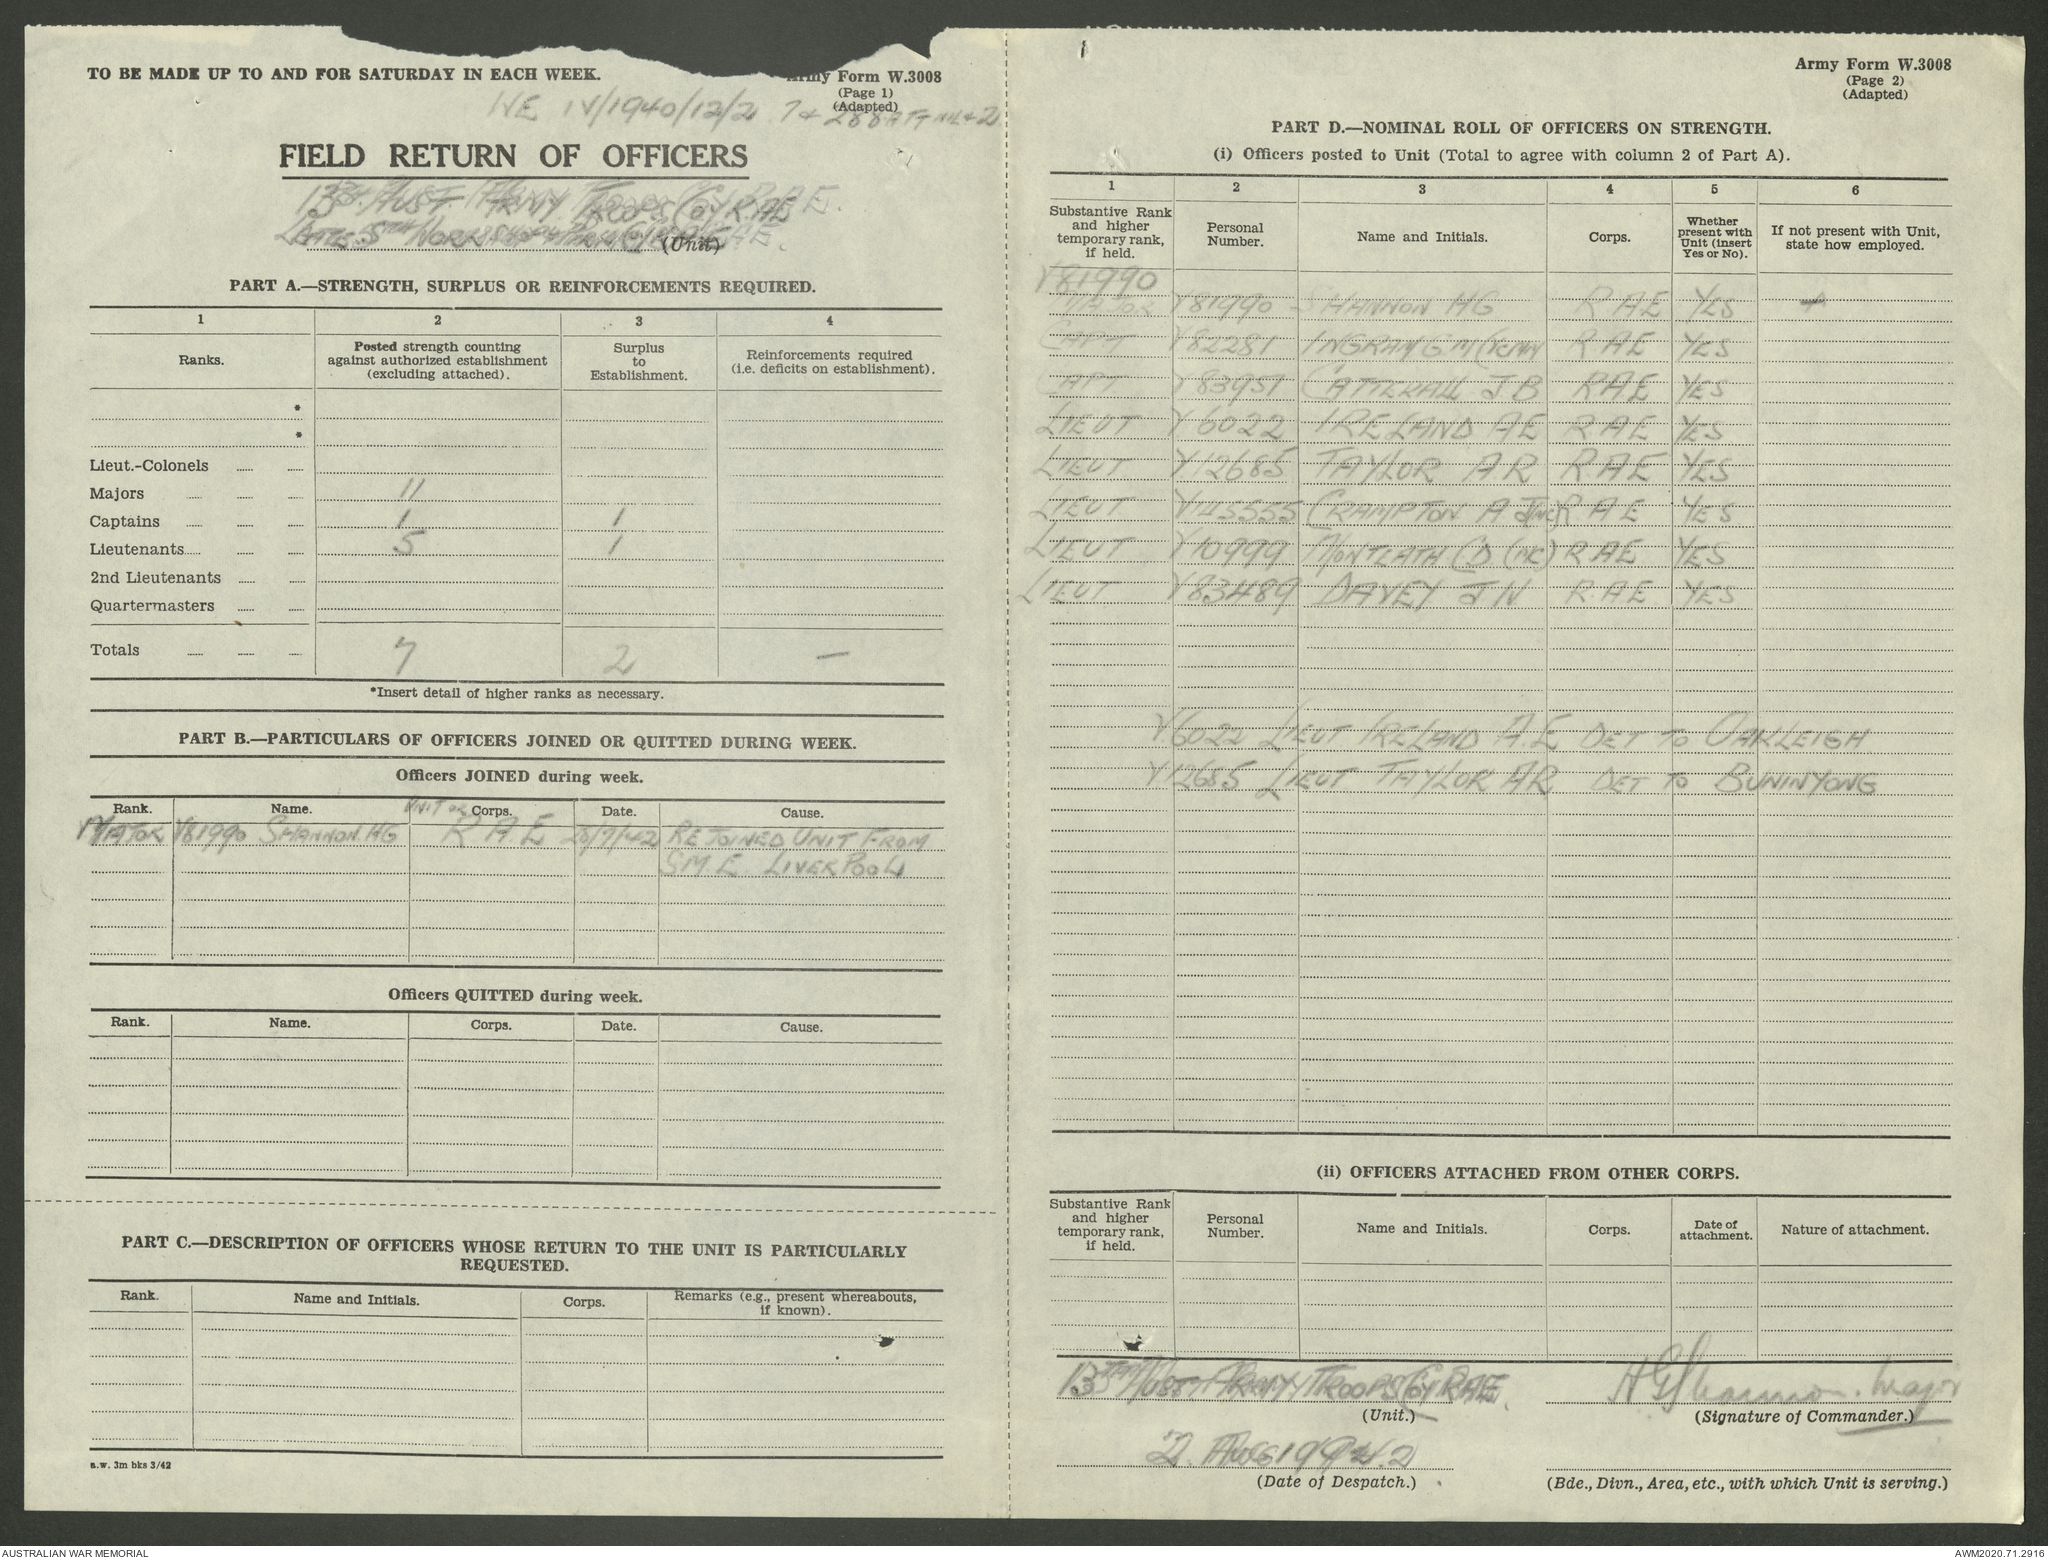 TO BE MADE UP TO AND FOR SATURDAY IN EACH WEEK.
Army Form W.3008
(Page 1)
(Adapted)
WE IV/1940/12/2 7 + 288 ATT NIL + 2
FIELD RETURN OF OFFICERS
13th AUST. ARMY TROOPS COY R.A.E.
(Unit)
PART A.—STRENGTH, SURPLUS OR REINFORCEMENTS REQUIRED.
1 2 3 4
Ranks. Posted strength counting against authorized establishment (excluding attached). Surplus to Establishment. Reinforcements required (i.e. deficits on establishment).
*
*
Lieut.-Colonels
Majors 11
Captains 1 1
Lieutenants 5 1
2nd Lieutenants
Quartermasters
Totals 7 2 —
*Insert detail of higher ranks as necessary.
PART B.—PARTICULARS OF OFFICERS JOINED OR QUITTED DURING WEEK.
Officers JOINED during week.
Rank. Name. UNIT OR Corps. Date. Cause.
MAJOR V81990 SHANNON. HG R.A.E 28/7/42 REJOINED UNIT FROM
S.M.E. LIVERPOOL
Officers QUITTED during week.
Rank. Name. Corps. Date. Cause.
PART C.—DESCRIPTION OF OFFICERS WHOSE RETURN TO THE UNIT IS PARTICULARLY
REQUESTED.
Rank. Name and Initials. Corps. Remarks (e.g., present whereabouts, if known).
s.w. 3m bks 3/42
Army Form W.3008
(Page 2)
(Adapted)
PART D.—NOMINAL ROLL OF OFFICERS ON STRENGTH.
(i) Officers posted to Unit (Total to agree with column 2 of Part A).
1 2 3 4 5 6
Substantive Rank and higher temporary rank, if held. Personal Number. Name and Initials. Corps. Whether present with Unit (insert Yes or No). If not present with Unit, state how employed.
V81990
MAJOR V81990 SHANNON HG R A E YES
CAPT V82281 INGRAM G.M R A E YES
CAPT V83951 CATTERALL J B RAE YES
LIEUT V6022 IRELAND A E R A E YES
LIEUT V12685 TAYLOR A R R.A.E YES
LIEUT CRAMPTON A. R A E YES
LIEUT V10999 MONTEATH C D (MC) R A E YES
LIEUT V83489 DAVEY J N R.A.E YES
V6022 LIEUT IRELAND A.E DET TO OAKLEIGH
V12685 LIEUT TAYLOR AR DET TO BUNINYONG
(ii) OFFICERS ATTACHED FROM OTHER CORPS.
Substantive Rank and higher temporary rank, if held. Personal Number. Name and Initials. Corps. Date of attachment. Nature of attachment.
13th AUST ARMY TROOPS COY R.A.E.
(Unit.)
HG Shannon. Major
(Signature of Commander.)
2. AUG 1942
(Date of Despatch.)
(Bde., Divn., Area, etc., with which Unit is serving.)
AUSTRALIAN WAR MEMORIAL
AWM2020.71.2916